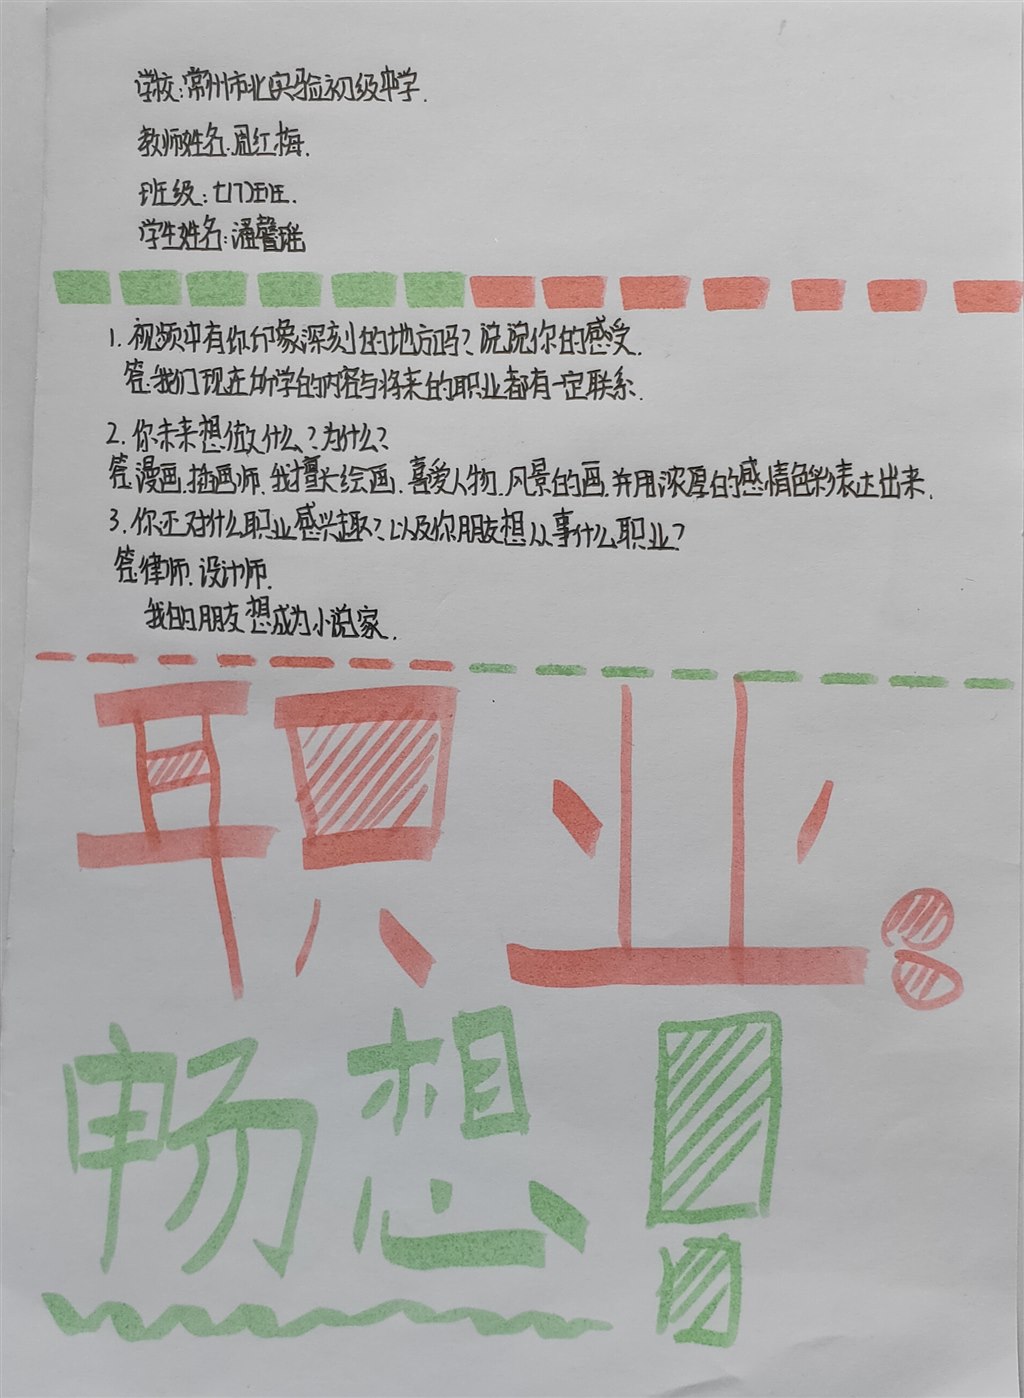 学校:常州市北实验初级中学.
教师姓名.周红梅.
班级:七(7)班.
学生姓名:潘馨瑶
1.视频中有你印象深刻的地方吗?说说你的感受.
答.我们现在所学的内容与将来的职业都有一定联系.
2.你未来想做什么?为什么?
答.漫画.插画师.我擅长绘画.喜爱人物.风景的画.并用浓厚的感情色彩表达出来.
3.你还对什么职业感兴趣?以及你朋友想从事什么职业?
答.律师.设计师.
我的朋友想成为小说家.
职业
畅想!